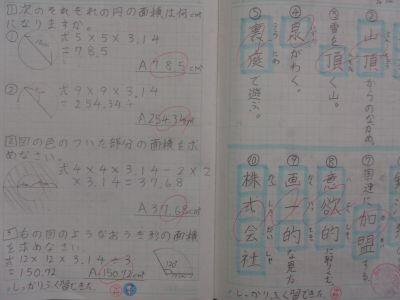 1 次のそれぞれの円の面積は何cm²
になりますか。
① 式 5×5×3.14
=78.5
A 78.5cm²
② 式 9×9×3.14
=254.34
A 254.34cm²
2 図の色のついた部分の面積を求
めなさい。
式 4×4×3.14-2×2
×3.14=37.68
A 37.68cm²
3 右の図のようなおうぎ形の面積
を求めなさい。
式 12×12×3.14÷3
=150.72 A 150.72cm²
120°
しっかりふく習できた。
② 山頂からのながめ。
③ 雪を頂く山。
④ 泉がわく。
⑤ 裏庭で遊ぶ。
⑦ 国連に加盟する。
⑧ 意欲的に
⑨ 画一的な見方
⑩ 株式会社
しっかりふく習できた。